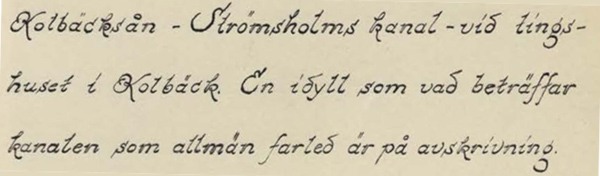 Kolbäcksån - Strömsholms kanal - vid tings-
huset i Kolbäck. En idyll som vad beträffar
kanalen som allmän farled är på avskrivning.